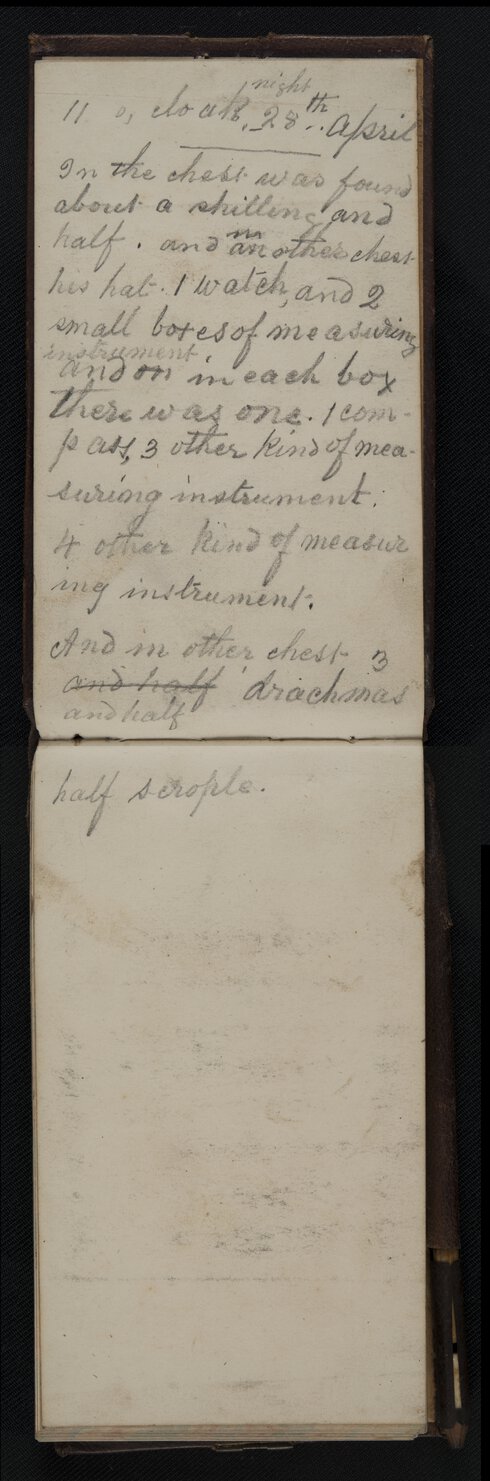 night
11 o, cloak, 28th April
In the chest was found
about a shilling and
half. and in another chest
his hat. 1 watch, and 2
small boxes of measuring
instrument
and on in each box
there was one. 1 com-
pass, 3 other kind of mea-
suring instrument.
4 other kind of measur
ing instrument.
And in other chest 3
and half drachmas
and half
half scrople.